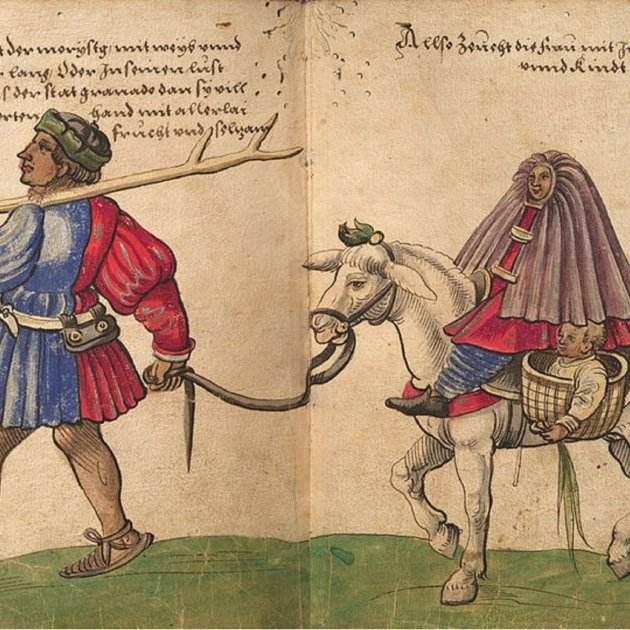 t der morystg, mit weyb vnnd
r lang, Oder In seinen lust
s der stat granado dan sy vill
rten hand mit allerlai
frucht vnd selzam
Allso Zeücht die frau mit I
vnnd Kindt